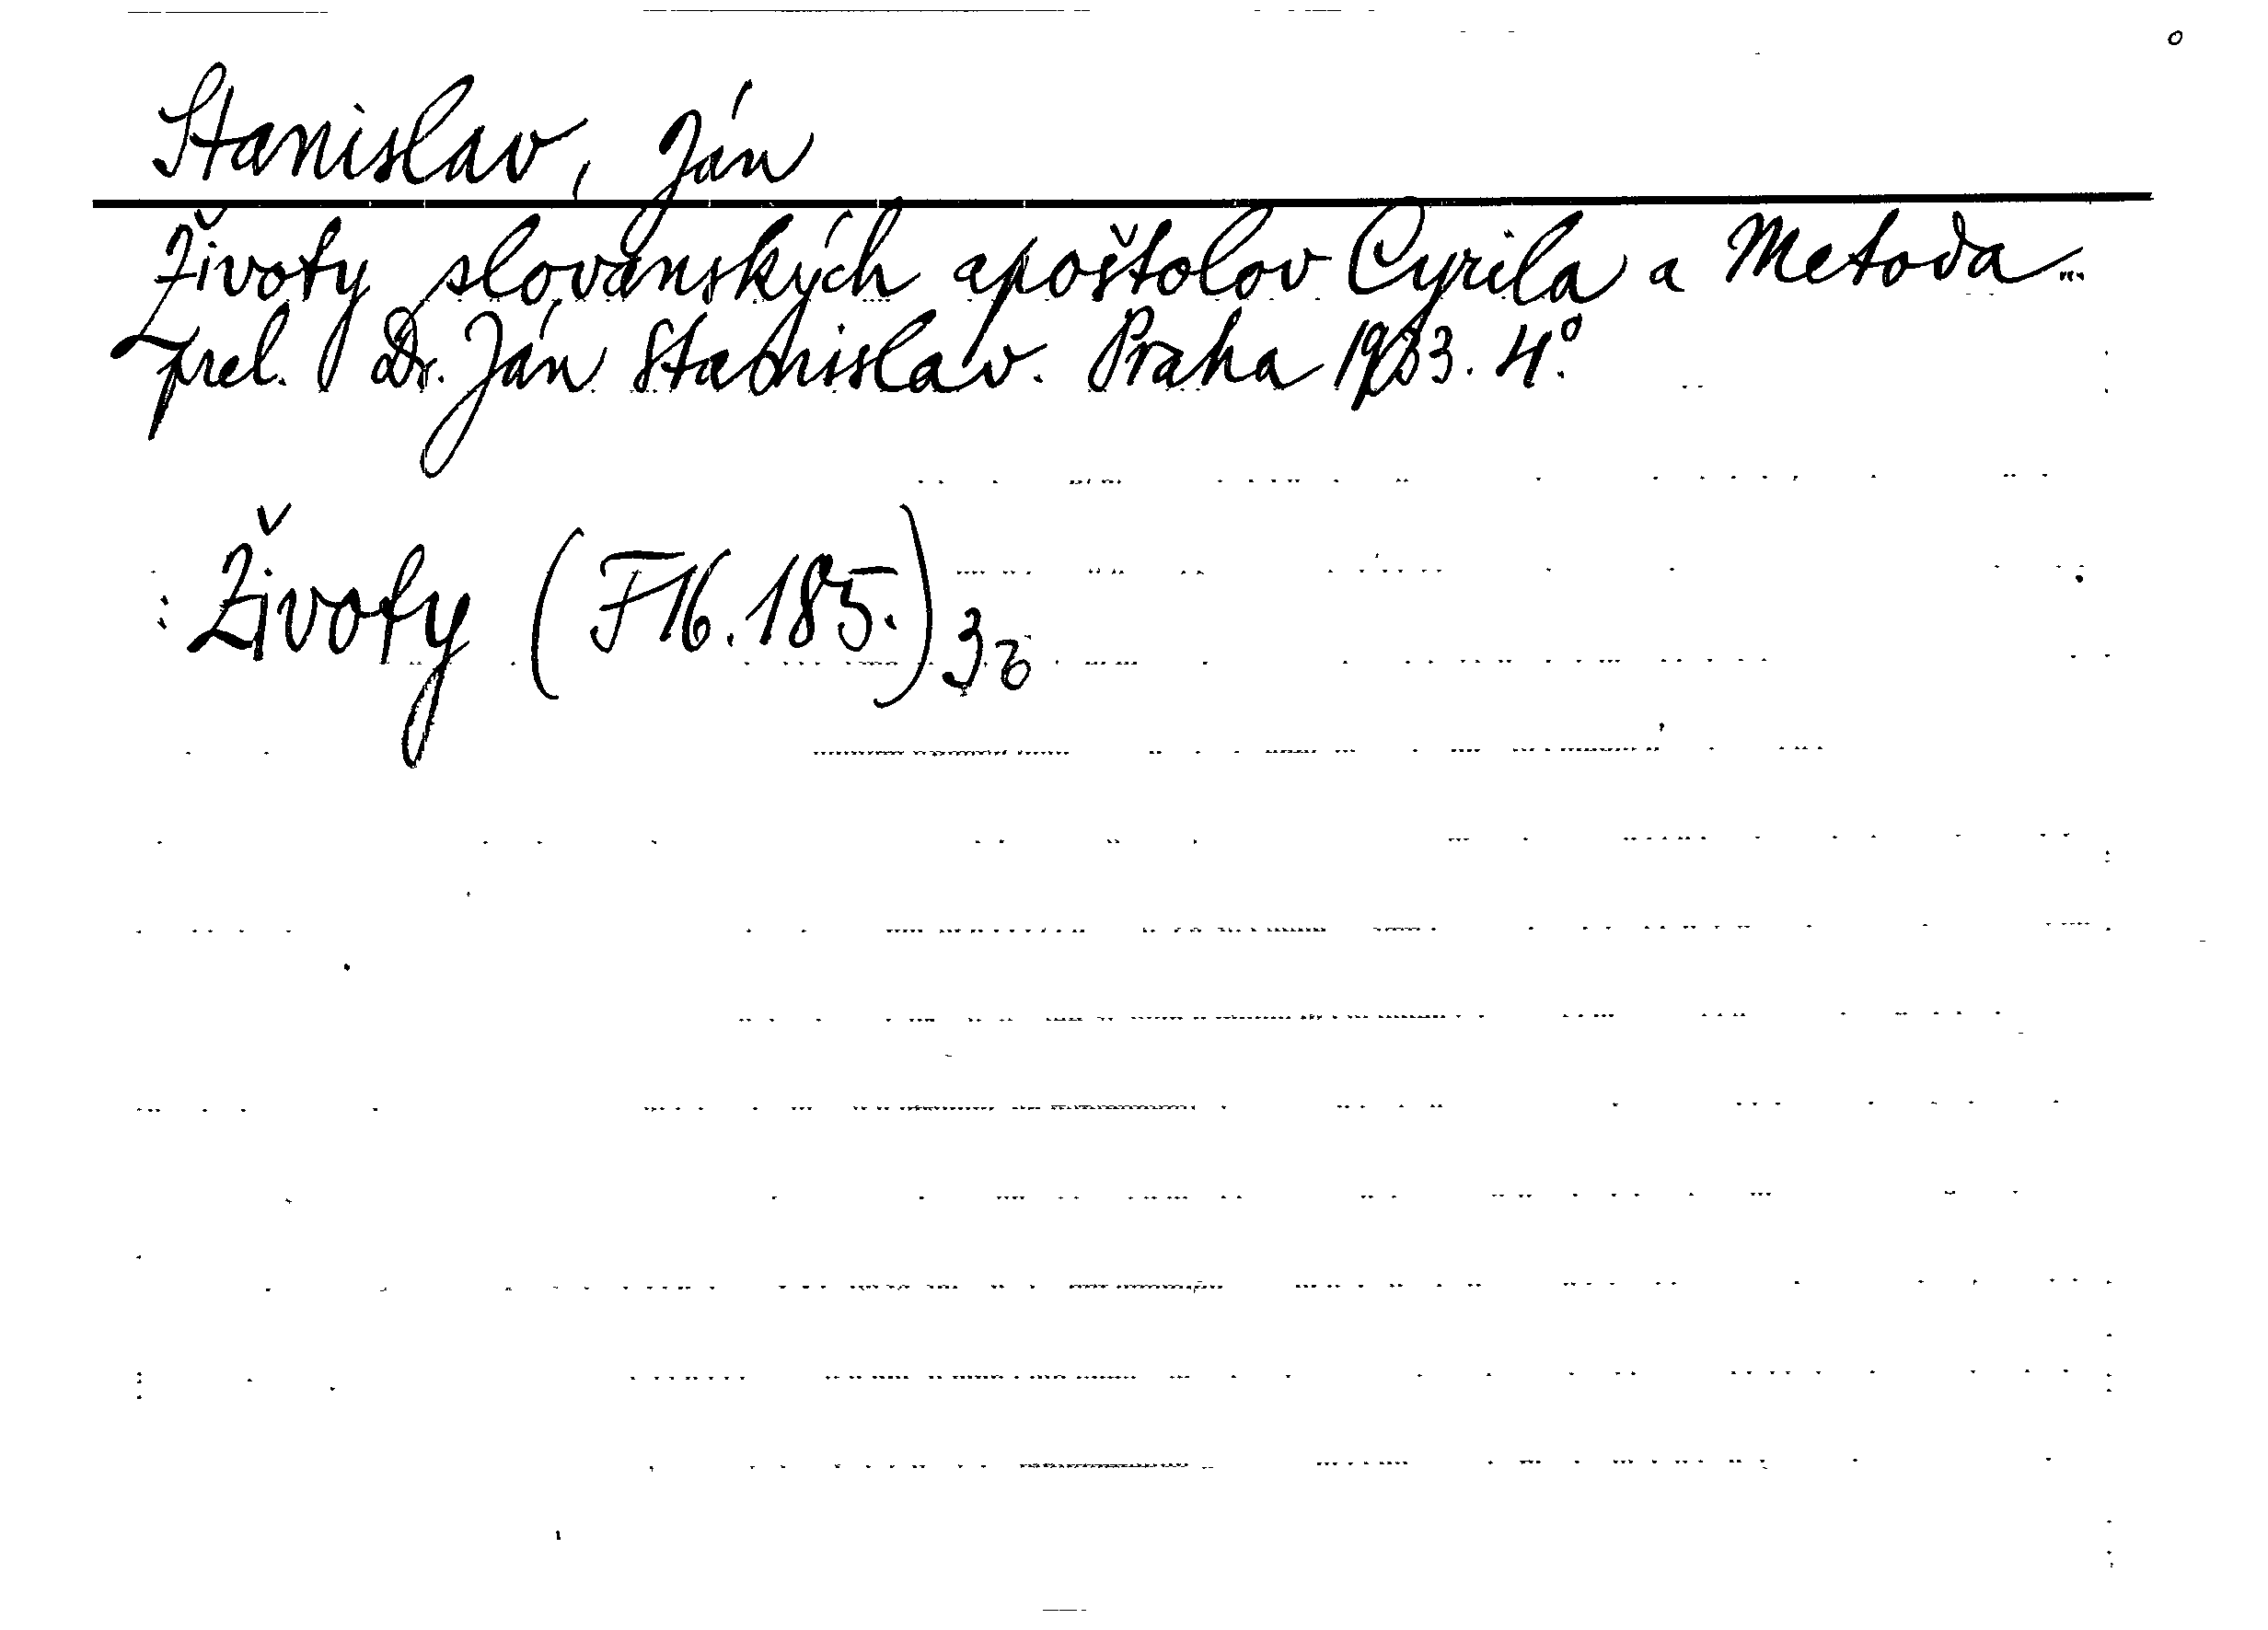 Stanislav, Ján
Životy slovanských apoštolov Cyrila a Metoda...
prel. Dr. Ján Stanislav. Praha 1933. 4°.
Životy (F 16.185.)